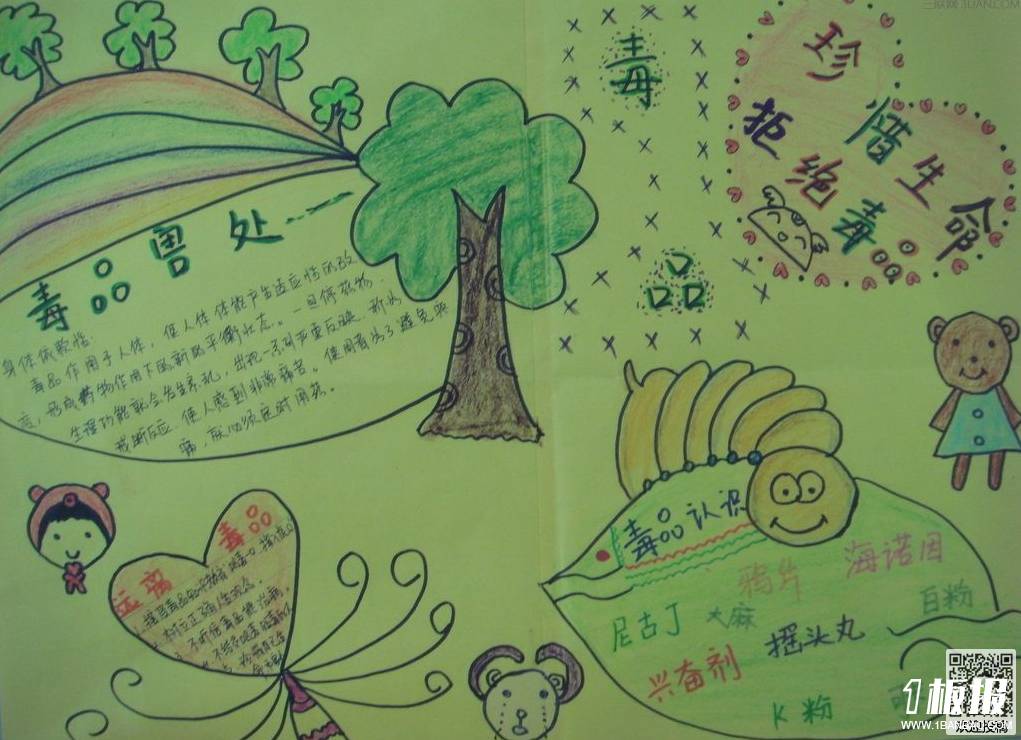 三联网 3LIAN.COM
毒
品
珍惜生命
拒绝毒品
毒品害处……
身体依赖性
毒品作用于人体，使人体体能产生适应性的改
变，形成药物作用下的新的平衡状态。一旦停药物，
生理功能就会发生紊乱，出现一系列严重反映，称为
戒断反应，使人感到非常痛苦。使用者为了避免戒
毒品认识
鸦片
海诺因
尼古丁
大麻
白粉
摇头丸
兴奋剂
K粉
远离
毒品
树立正确人生观
1板报
WWW.1BANBAO.COM
欢迎投稿